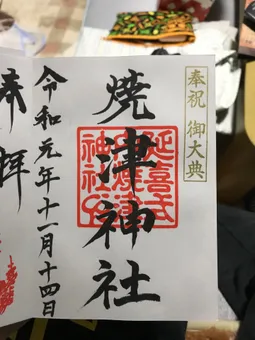 奉祝 御大典
焼津神社
延喜式
神社
令和元年十一月十四日
奉拝